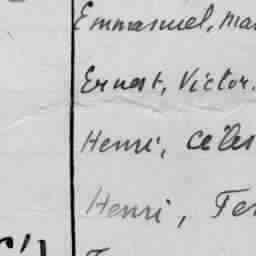 Emmanuel, Ma
Ernest, Victor.
Henri, Céles
Henri, Fer